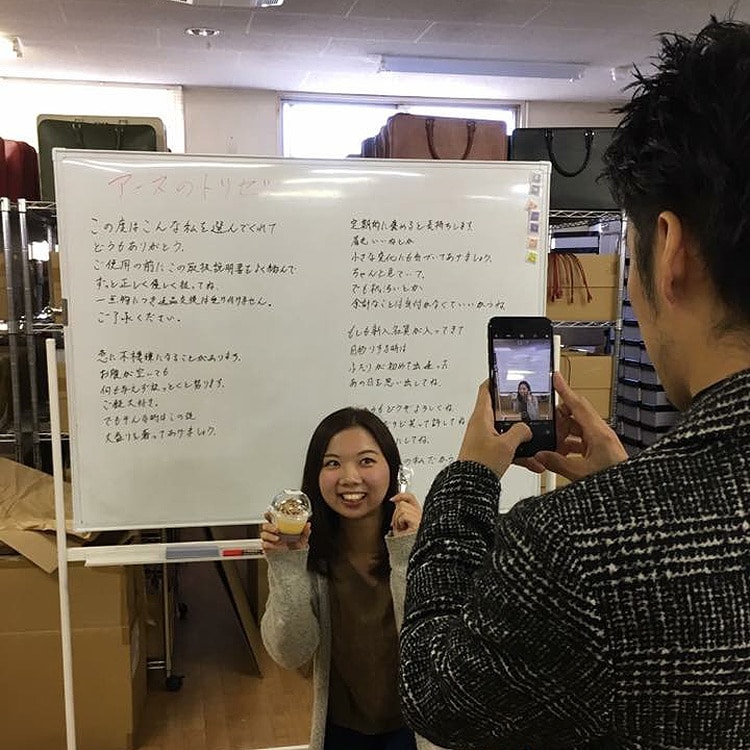 アースのトリセ
この度はこんな私を選んでくれて
どうもありがとう。
ご使用の前にこの取扱説明書をよく読んで
ずっと正しく優しく扱ってね。
一点物につき返品交換は受け付けません。
ご了承ください。
急に不機嫌になることがあります。
お腹が空いても
何も与えず放っとくと怒ります。
ご飯大好き。
でもそんな時はこの後
大盛りを
てあげましょう。
定期的に褒めると長持ちします。
いいねとか
小さな変化にも気づいてあげましょう。
ちゃんと見ていて。
でも
とか
余計なことは気付かなくていいからね。
もしも新入
が入ってきて
目移りする時は
ふたりが初めて出逢った
あの日を思い出してね。
もどうぞよろしくね
笑って許してね
にしてね。
の私だから